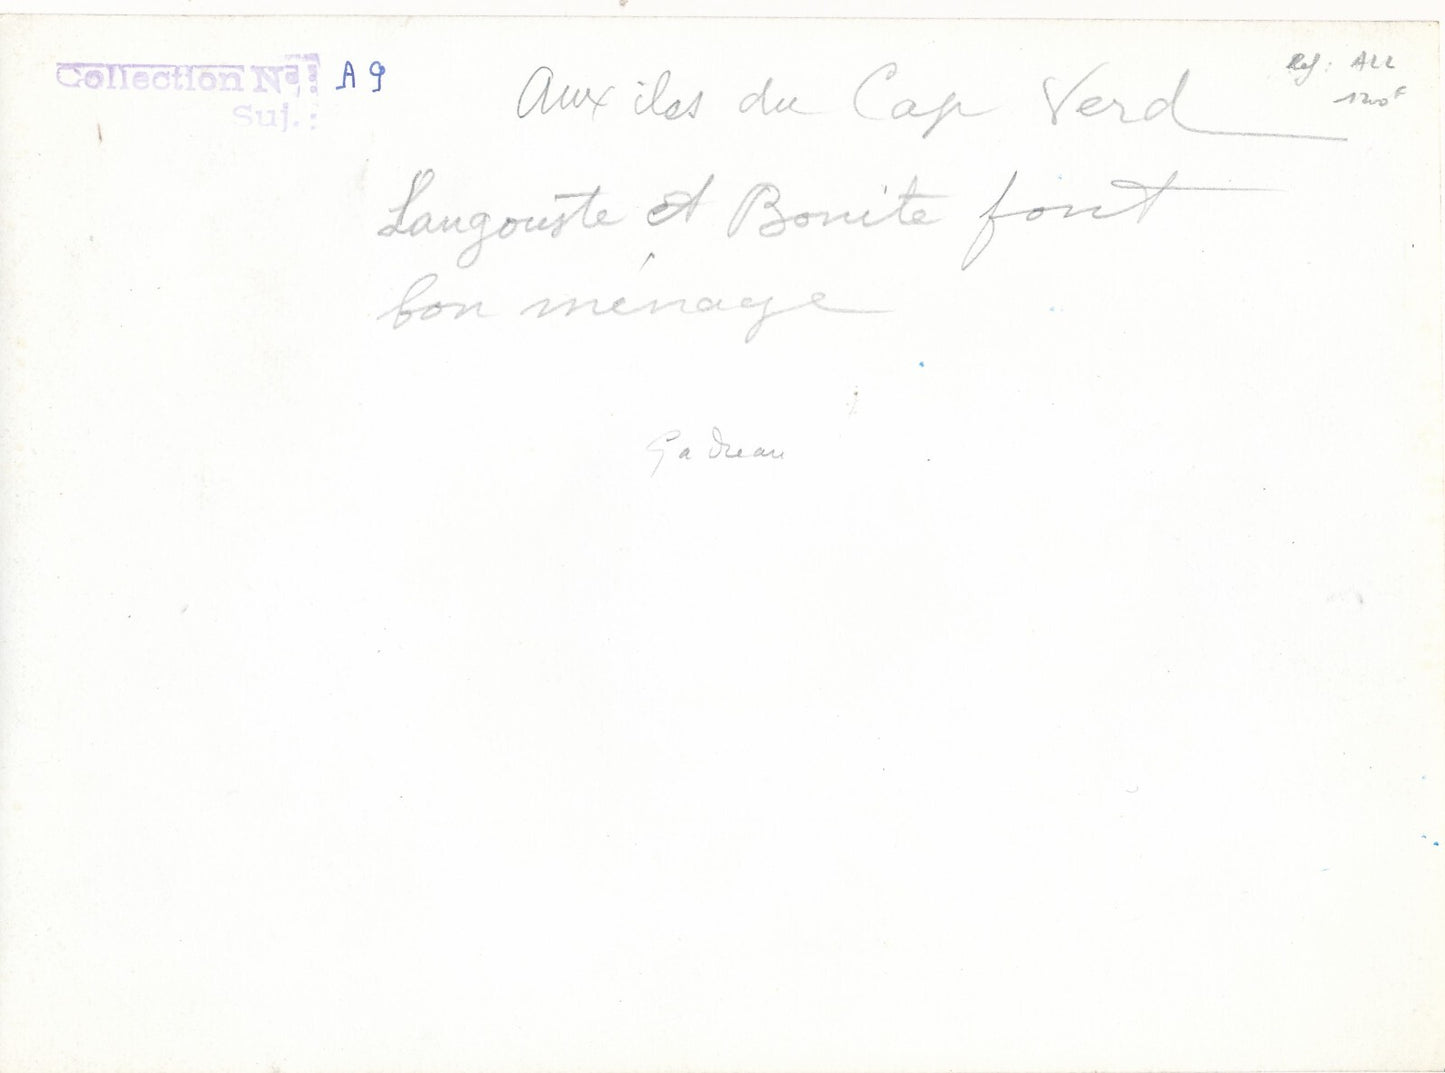 Collection No : A 9
Suj. :
Aux iles du Cap Verd
Langouste et Bonite font
bon ménage
Gadreau
Ref : ALL
1200F